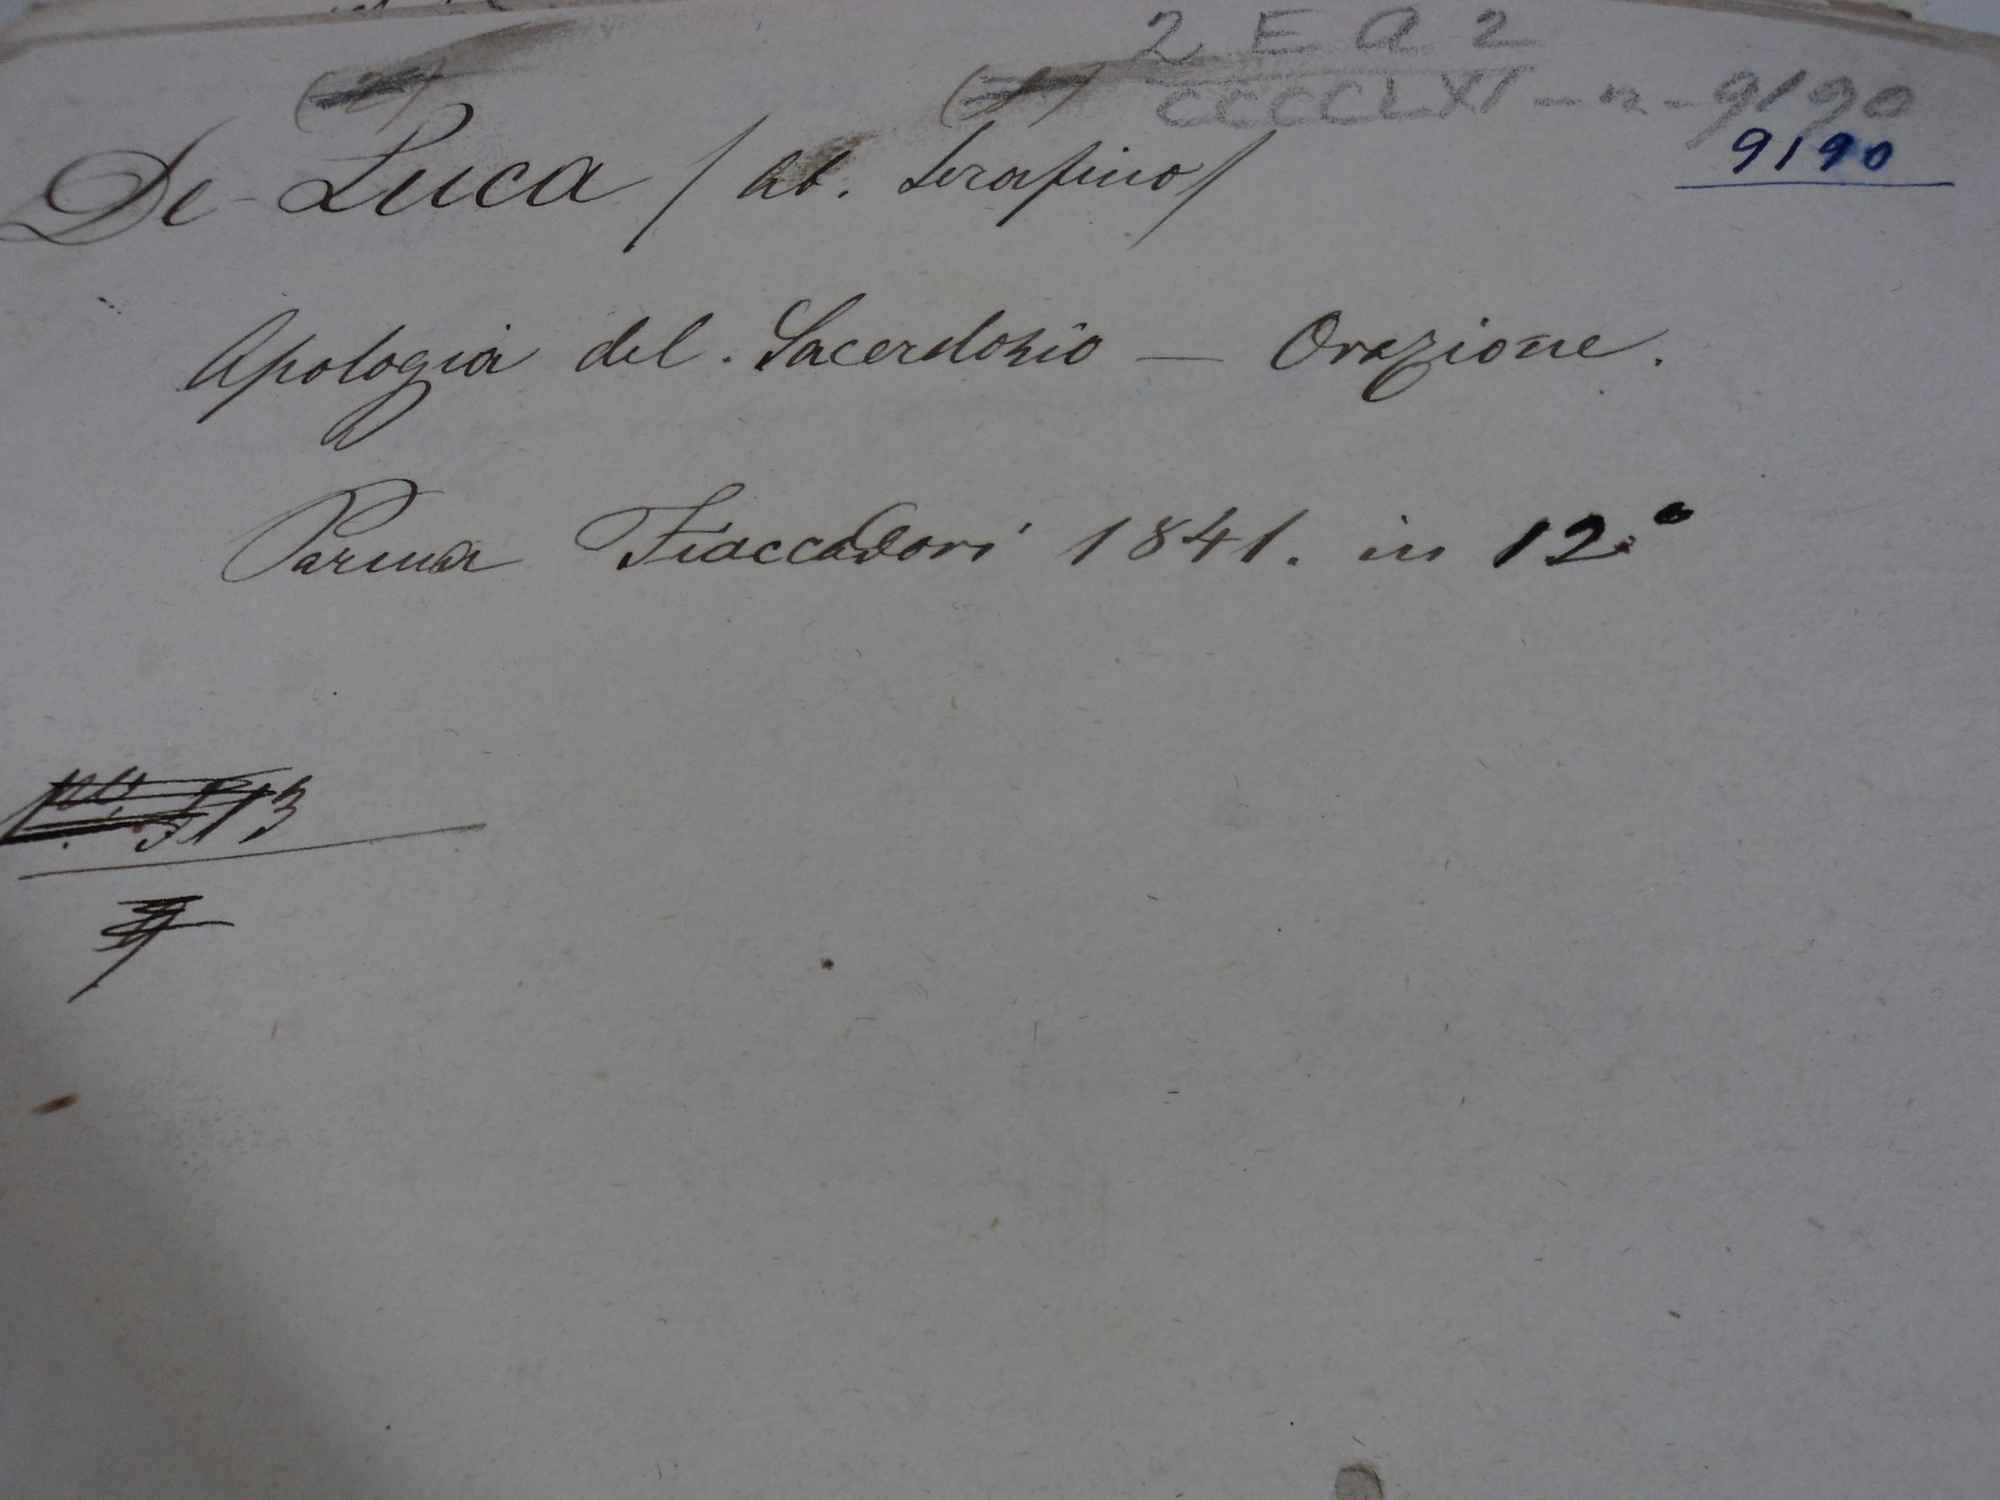 2 E A 2
CCCCCLXI - n - 9190
9190
De-Luca / Ab. Serafino /
Apologia del Sacerdozio — Orazione.
Parma Fiaccadori 1841. in 12.º